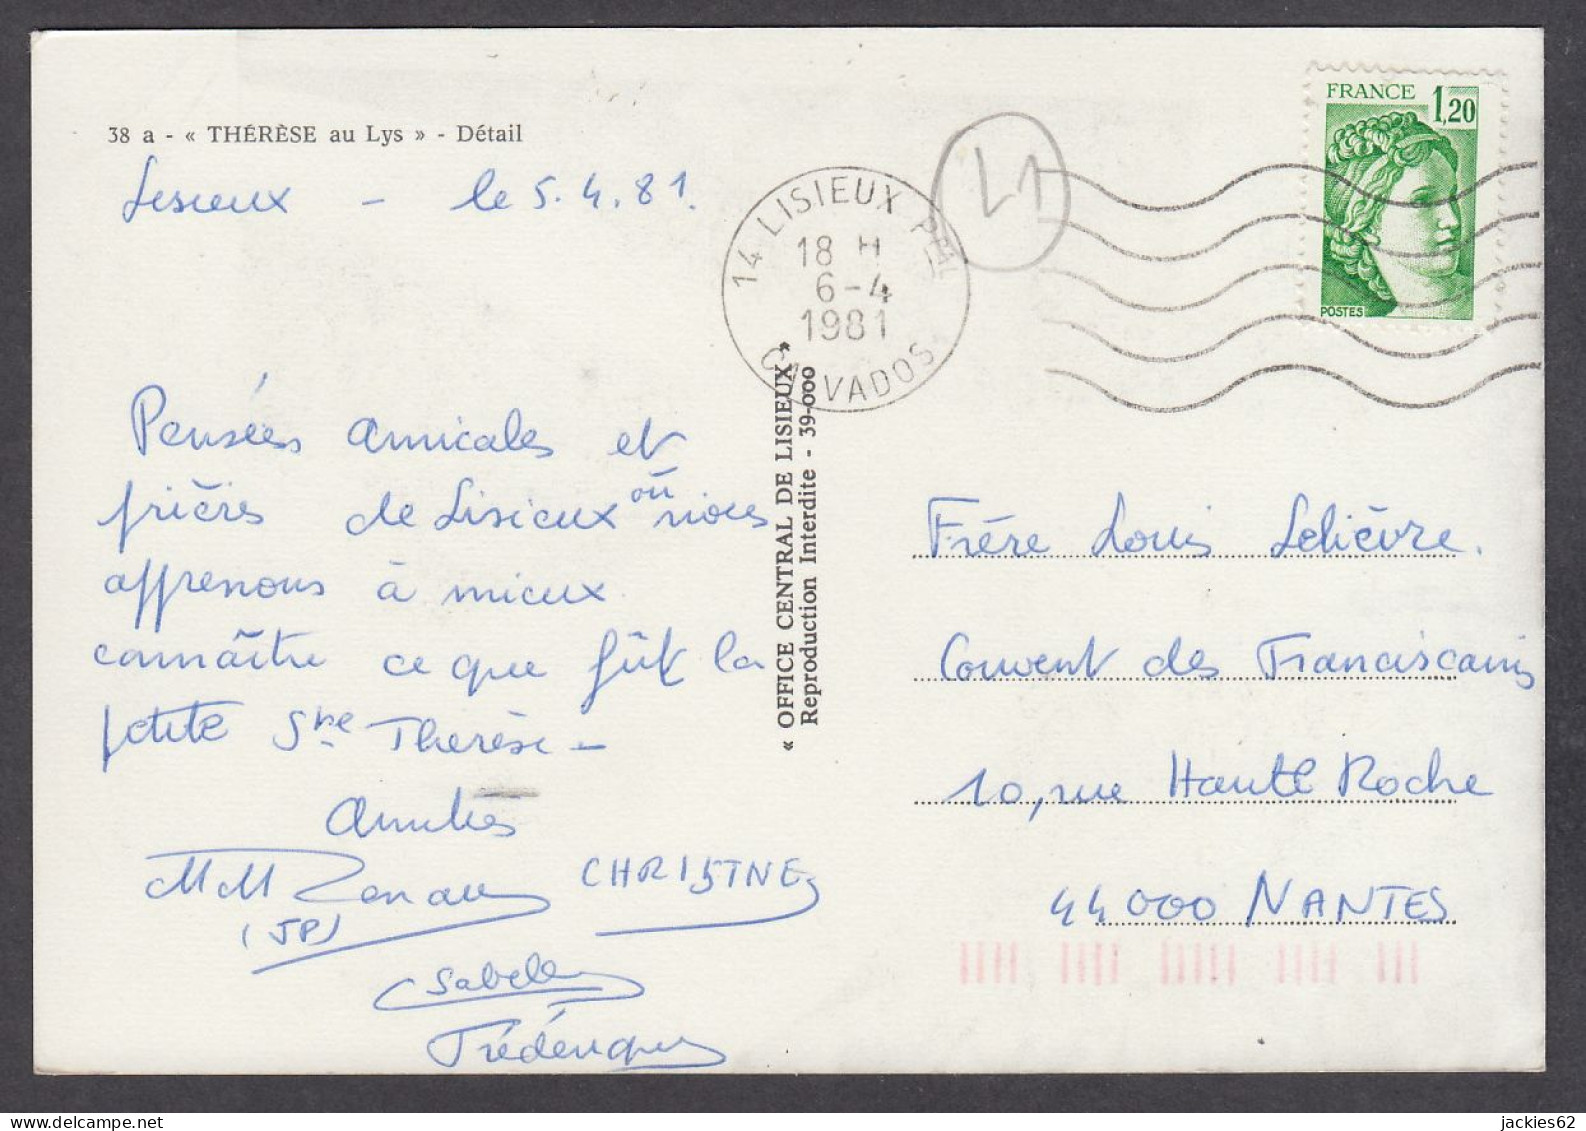 38 a - « THÉRÈSE au Lys » - Détail
Lisieux - le 5.4.81.
Pensées amicales et
prières de Lisieux où nous
apprenons à mieux
connaître ce que fût la
petite Ste Thérèse -
Amitiés
(JP)
CHRISTINE
Isabelle
Frédérique
« OFFICE CENTRAL DE LISIEUX »
Reproduction Interdite - 39-000
14 LISIEUX PPAL
18 H
6-4
1981
CALVADOS
L1
FRANCE 1,20
POSTES
Frère Louis Lelièvre.
Couvent des Franciscains
10, rue Haute Roche
44000 NANTES
jackies62